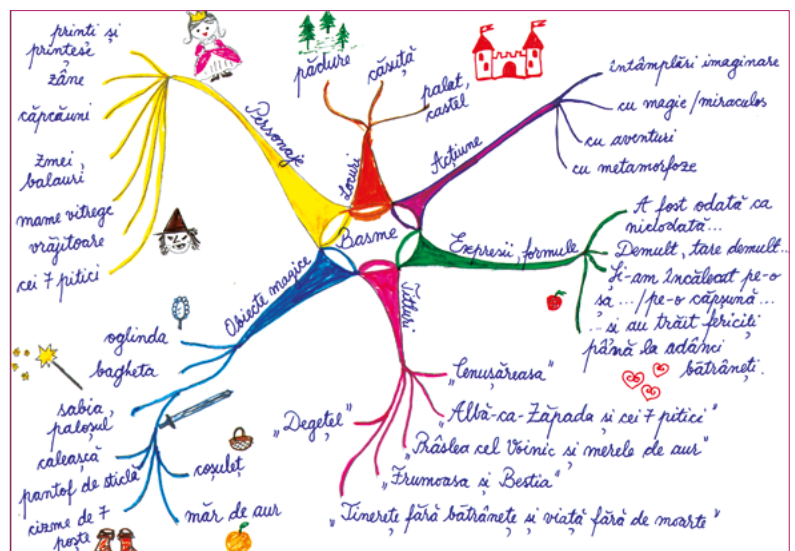 Basme
Personaje
printi și
printese
zâne
căpcăuni
zmei,
balauri
mame vitrege
vrăjitoare
cei 7 pitici
Locuri
pădure
căsuță
palat,
castel
Acțiune
întâmplări imaginare
cu magie/miraculos
cu aventuri
cu metamorfoze
Expresii, formule
A fost odată ca
niciodată...
Demult, tare demult...
Și-am încălecat pe-o
șa .../pe-o căpșună...
...și au trăit fericiți
până la adânci
bătrâneți.
Titluri
„Cenușăreasa”
„Albă-ca-Zăpada și cei 7 pitici”
„Prâslea cel Voinic și merele de aur”
„Frumoasa și Bestia”
„Tinerețe fără bătrânețe și viață fără de moarte”
„Degețel”
Obiecte magice
oglinda
bagheta
sabia,
paloșul
caleașcă
pantof de sticlă
cizme de 7
poște
măr de aur
coșuleț